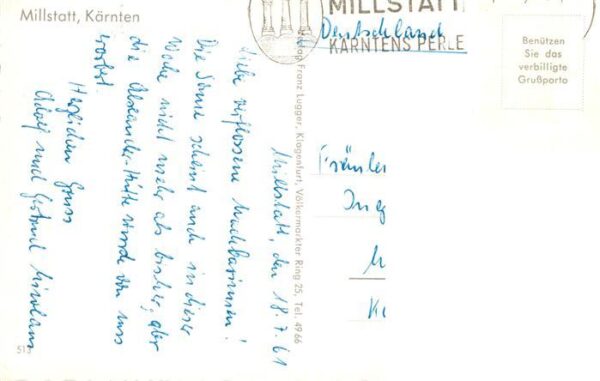 Millstatt, Kärnten
MILLSTATT
KÄRNTENS PERLE
Deutschland
Benützen
Sie das
verbilligte
Grußporto
Verlag Franz Lugger, Klagenfurt, Völkermarkter Ring 25, Tel. 4966
Millstatt, den 18.7.61
Liebe verflossene Nachbarinnen!
Die Sonne scheint auch in dieser
Woche nicht mehr als bisher, aber
die Alexander-Hütte wurde von uns
Herzlichen Gruss
Adolf und Gertrud
Fräulei
Ing
513